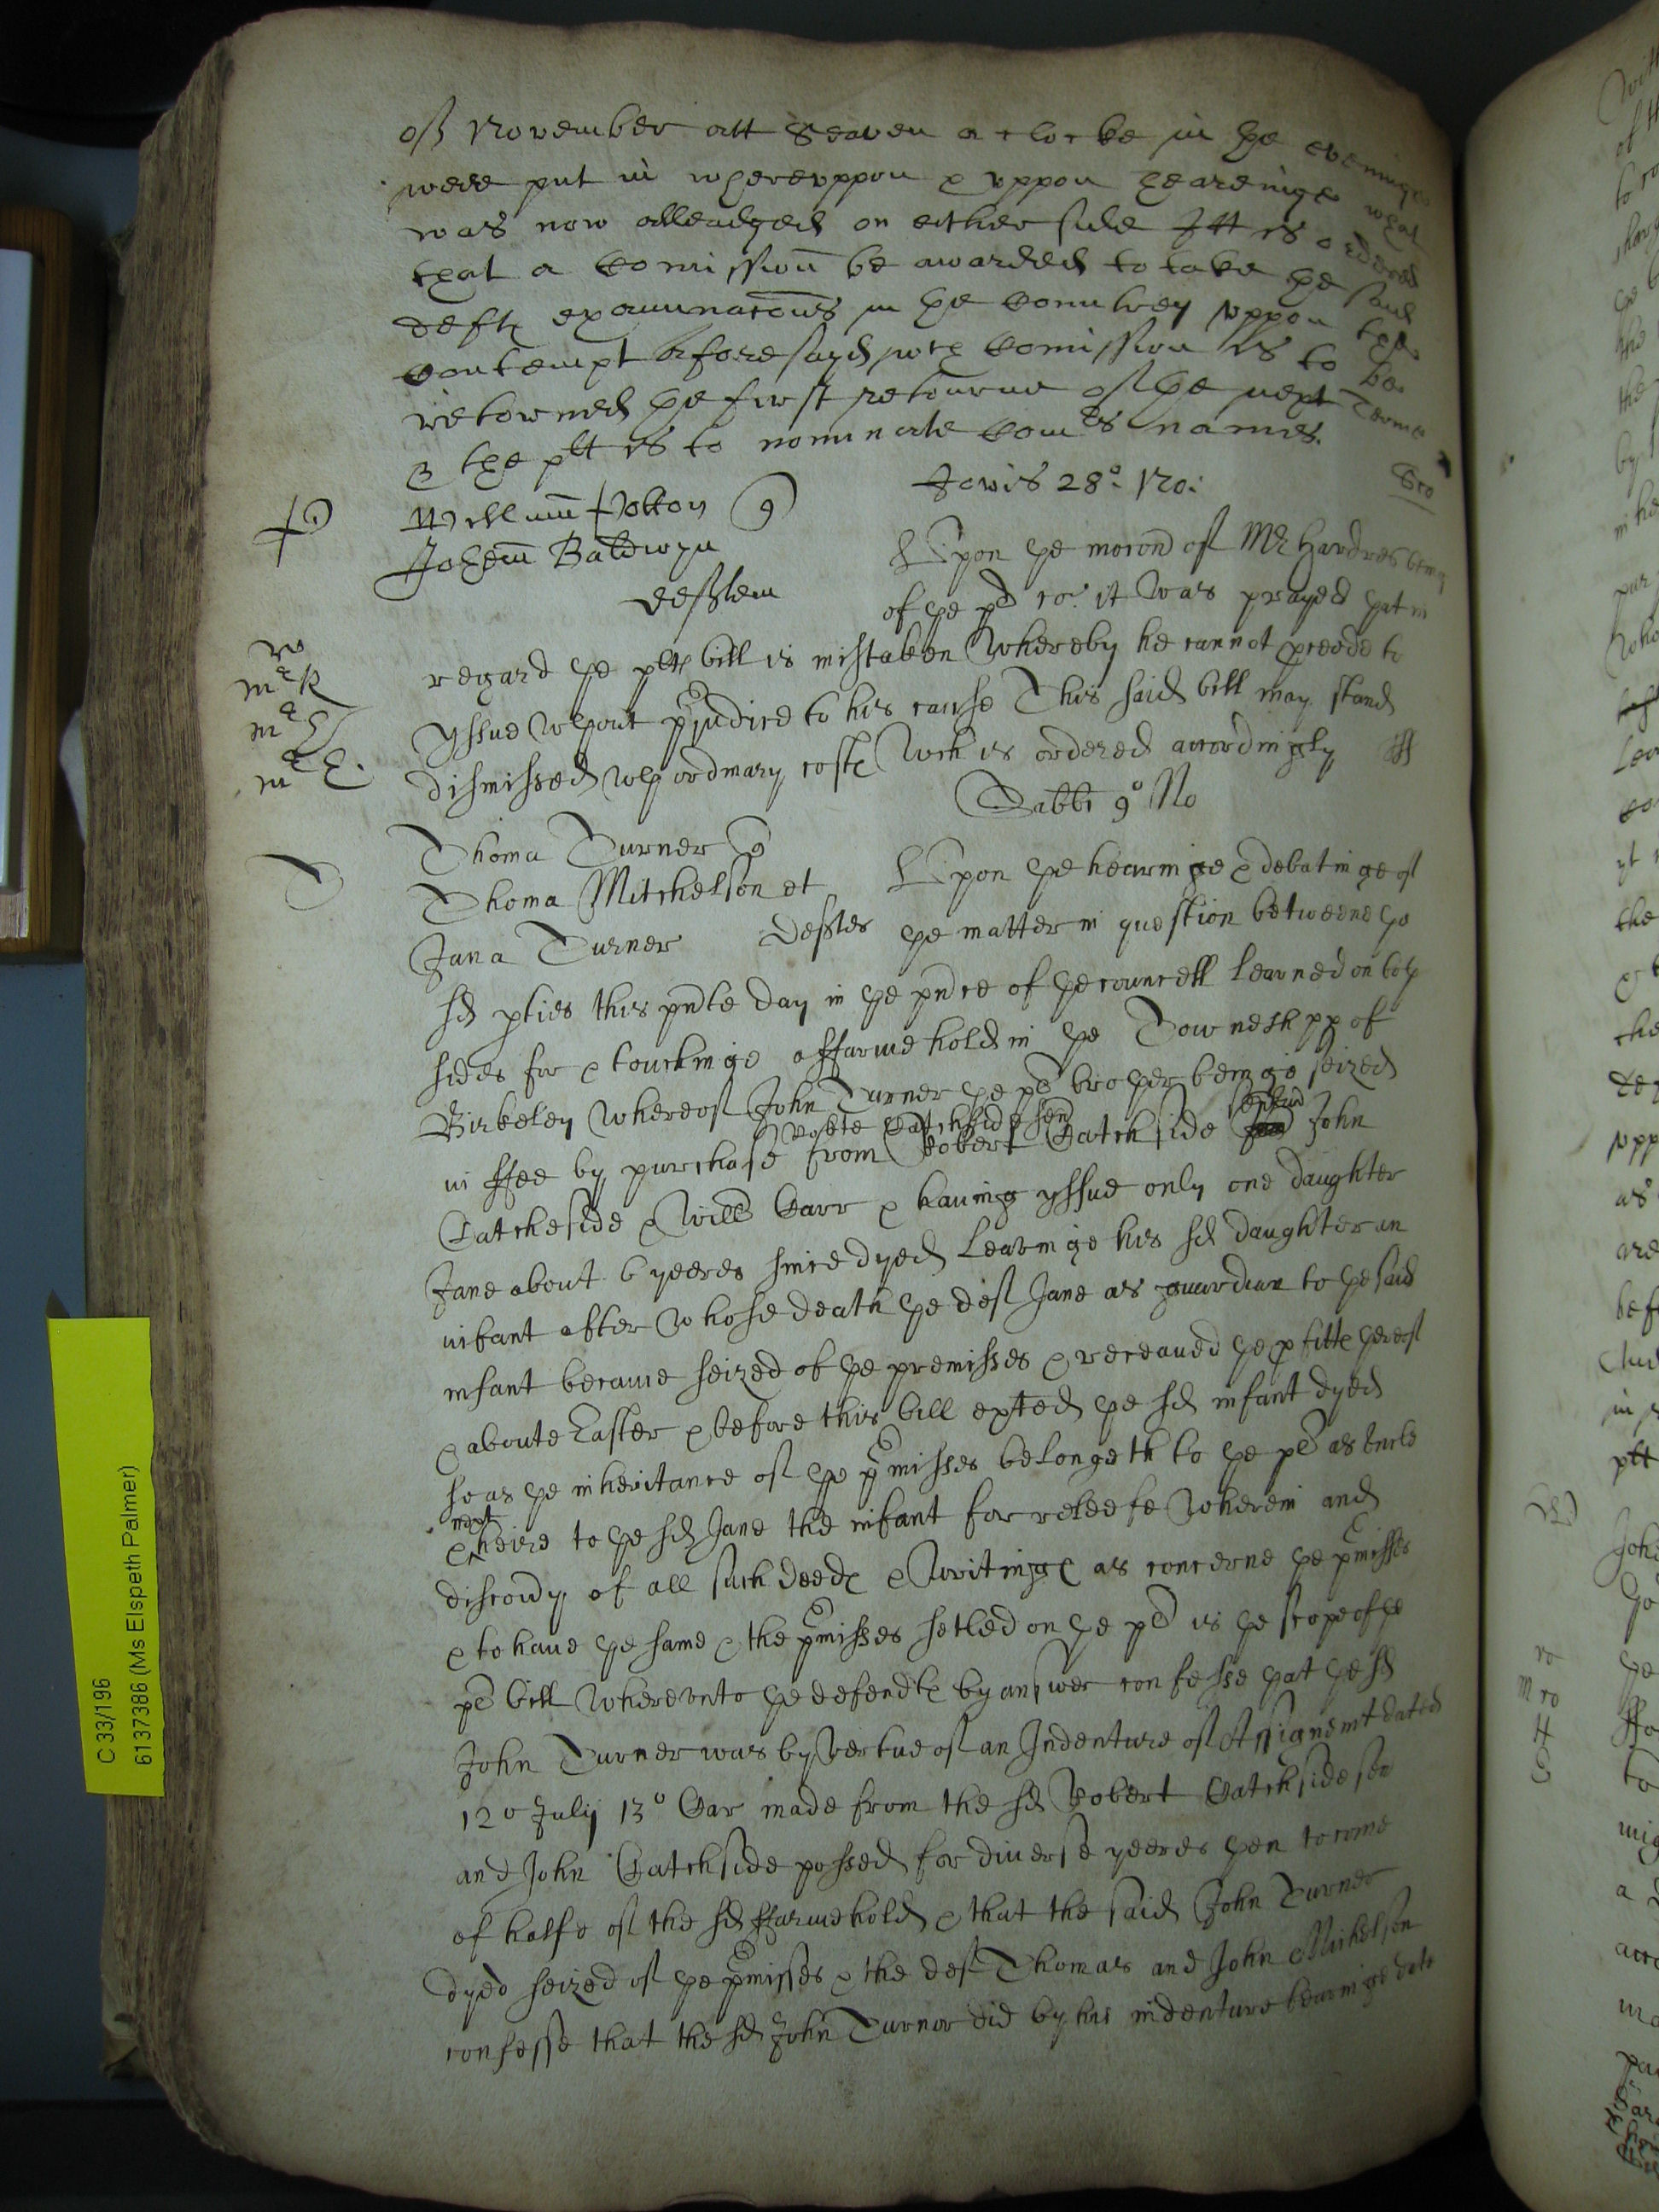 of November att Seaven a clocke in the eveninge
were put in whereuppon & uppon heareinge what
was now alleadged on either side Itt is ordered
that a Comission be awarded to take the said
defts examinacons in the Countrey uppon the
contempt aforesayd wch Comission is to be
retorned the first retourne of the next Terme
& the plt is to nominate Comrs names.
Jovis 28o: No:
Willmm
Johem Baldwyn
deften
Upon the mocond of Mr Hardres being
of the pl co: it was prayed that in
regard the plts bill is mistaken Whereby he cannot pceede to
yssue wthout pjudice to his cause This said bill may stand
dismissed wth ordinary costs Wch is ordered accordingly
Sabbi 9o No
Thoma Turner
Thoma Mitchelson et
Jana Turner Deftes
Upon the hearinge & debatinge of
the matter in question betweene the
sd pties this pnte day in the pnce of the councell learned on both
sides for & touchinge a ffarmehold in the Towneshpp of
Birkeley Whereof John Turner the pl brother beinge seized
in ffee by purchase from Robert Catchside John
Robte Catchside sen
Catcheside & Willm Carr & having yssue only one daughter
Jane about 6 yeeres since dyed Leavinge his sd daughter an
infant after Whose death the def Jane as guardian to the said
infant became seized of the premisses & receaved the pfitts thereof
& aboute Easter & before this bill exted the sd infant dyed
so as the inheritance of the pmisses belongeth to the pl as Uncle
next
& heire to the sd Jane the infant for releefe Wherein and
discovy of all such deeds & Writings as concerne the pmisses
& to have the same & the pmisses setled on the pl is the scope of the
pl bill Whereunto the defendts by answer confesse that the sd
John Turner was by vertue of an Indenture of Assignemt dated
12o July 13o Car made from the sd Robert Catchside sen
and John Catchside possed for diverse yeeres then to come
of halfe of the sd ffarmehold & that the said John Turner
dyed seized of the pmisses & the def Thomas and John Michelson
confesse that the sd John Turner did by his indenture bearinge date
C 33/196
6137386 (Ms Elspeth Palmer)